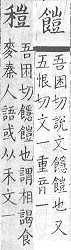 䭓
吾困切說文䭡䭓也又
五恨切文一重音一
吾困切䭡䭓也謂相謁食
麥秦人語或从禾文一